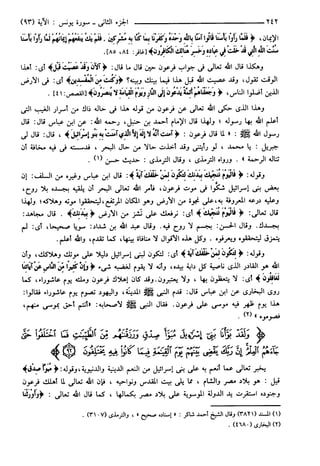 ٢٤٢ الجزء الثاني ـ سورة يونس : الآية (٩٣)
الإيمان، ﴿فَلَمَّا رَأَوْا بَأْسَنَا قَالُوا آمَنَّا بِاللَّهِ وَحْدَهُ وَكَفَرْنَا بِمَا كُنَّا بِهِ مُشْرِكِينَ . فَلَمْ يَكُ يَنفَعُهُمْ إِيمَانُهُمْ لَمَّا رَأَوْا بَأْسَنَا
سُنَّتَ اللَّهِ الَّتِي قَدْ خَلَتْ فِي عِبَادِهِ وَخَسِرَ هُنَالِكَ الْكَافِرُونَ﴾ [غافر: ٨٤، ٨٥].
وهكذا قال الله تعالى في جواب فرعون حين قال ما قال: ﴿آلآنَ وَقَدْ عَصَيْتَ قَبْلُ﴾ أي: أهذا
الوقت تقول، وقد عصيت الله قبل هذا فيما بينك وبينه؟ ﴿وَكُنتَ مِنَ الْمُفْسِدِينَ﴾ أي: في الأرض
الذين أضلوا الناس، ﴿وَجَعَلْنَاهُمْ أَئِمَّةً يَدْعُونَ إِلَى النَّارِ وَيَوْمَ الْقِيَامَةِ لا يُنصَرُونَ﴾ [القصص: ٤١] .
وهذا الذي حكى الله تعالى عن فرعون من قوله هذا في حاله ذاك من أسرار الغيب التي
أعلم الله بها رسوله ؛ ولهذا قال الإمام أحمد بن حنبل، رحمه الله: عن ابن عباس قال: قال
رسول الله ﷺ : « لما قال فرعون : ﴿آمَنتُ أَنَّهُ لا إِلَهَ إِلاَّ الَّذِي آمَنَتْ بِهِ بَنُو إِسْرَائِيلَ﴾، قال: قال لي
جبريل : يا محمد ، لو رأيتني وقد أخذت حالا من حال البحر ، فدسسته في فيه مخافة أن
تناله الرحمة » . ورواه الترمذي ، وقال الترمذي : حديث حسن (١) .
وقوله: ﴿فَالْيَوْمَ نُنَجِّيكَ بِبَدَنِكَ لِتَكُونَ لِمَنْ خَلْفَكَ آيَةً﴾: قال ابن عباس وغيره من السلف: إن
بعض بني إسرائيل شكوا في موت فرعون، فأمر الله تعالى البحر أن يلقيه بجسده بلا روح،
وعليه درعه المعروفة به، على نجوة من الأرض وهو المكان المرتفع، ليتحققوا موته وهلاكه؛ ولهذا
قال تعالى: ﴿فَالْيَوْمَ نُنَجِّيكَ﴾ أي: نرفعك على نَشز من الأرض ﴿بِبَدَنِكَ﴾ . قال مجاهد:
بجسدك. وقال الحسن: بجسم لا روح فيه. وقال عبد الله بن شداد: سويا صحيحا، أي: لم
يتمزق ليتحققوه ويعرفوه . وكل هذه الأقوال لا منافاة بينها، كما تقدم، والله أعلم.
وقوله: ﴿لِتَكُونَ لِمَنْ خَلْفَكَ آيَةً﴾ أي: لتكون لبني إسرائيل دليلا على موتك وهلاكك، وأن
الله هو القادر الذي ناصية كل دابة بيده، وأنه لا يقوم لغضبه شيء، ﴿وَإِنَّ كَثِيرًا مِّنَ النَّاسِ عَنْ آيَاتِنَا
لَغَافِلُونَ﴾ أي: لا يتعظون بها ، ولا يعتبرون. وقد كان إهلاك فرعون وملئه يوم عاشوراء، كما
روى البخاري عن ابن عباس قال: قدم النبي ﷺ المدينة، واليهود تصوم يوم عاشوراء فقالوا:
هذا يوم ظهر فيه موسى على فرعون. فقال النبي ﷺ لأصحابه: «أنتم أحق بموسى منهم،
فصوموه» (٢) .
﴿وَلَقَدْ بَوَّأْنَا بَنِي إِسْرَائِيلَ مُبَوَّأَ صِدْقٍ وَرَزَقْنَاهُم مِّنَ الطَّيِّبَاتِ فَمَا اخْتَلَفُوا حَتَّى
جَاءَهُمُ الْعِلْمُ إِنَّ رَبَّكَ يَقْضِي بَيْنَهُمْ يَوْمَ الْقِيَامَةِ فِيمَا كَانُوا فِيهِ يَخْتَلِفُونَ﴾
يخبر تعالى عما أنعم به على بني إسرائيل من النعم الدينية والدنيوية، وقوله: ﴿مُبَوَّأَ صِدْقٍ﴾
قيل : هو بلاد مصر والشام ، مما يلي بيت المقدس ونواحيه ، فإن الله تعالى لما أهلك فرعون
وجنوده استقرت يد الدولة الموسوية على بلاد مصر بكمالها ، كما قال الله تعالى : ﴿وَأَوْرَثْنَا
(١) المسند (٢٨٢١) وقال الشيخ أحمد شاكر : «إسناده صحيح» ، والترمذي (٣١٠٧) .
(٢) البخاري (٤٦٨٠) .